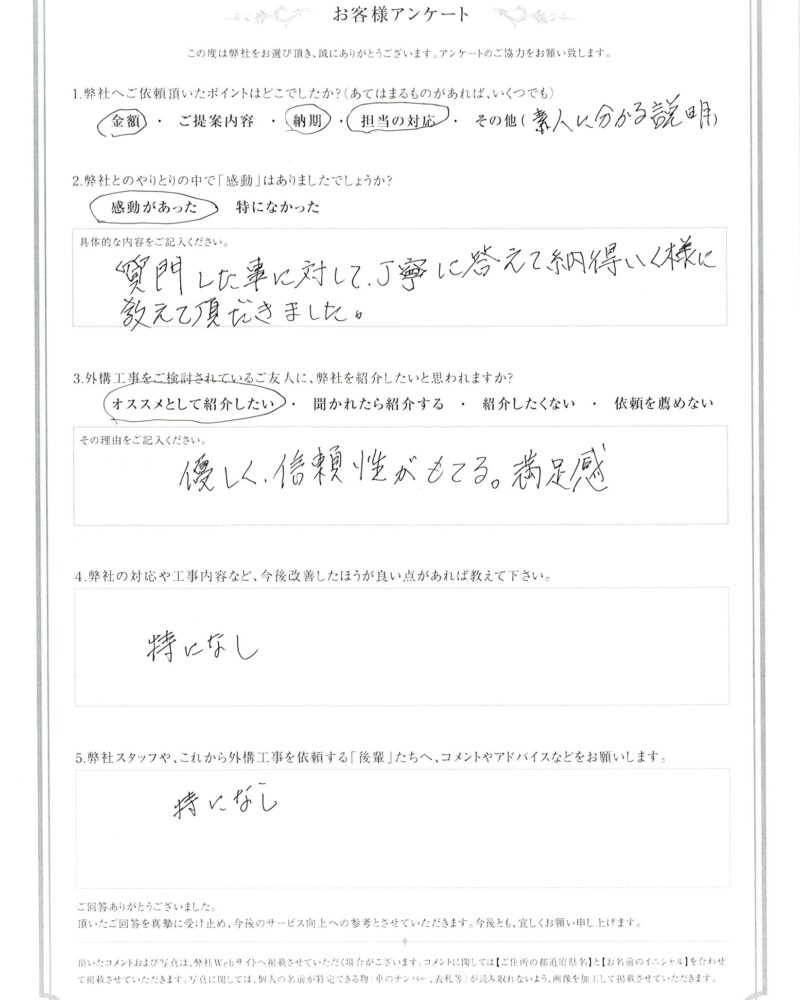 お客様アンケート
この度は弊社をお選び頂き、誠にありがとうございます。アンケートのご協力をお願い致します。
1.弊社へご依頼頂いたポイントはどこでしたか?(あてはまるものがあれば、いくつでも)
金額・ご提案内容・納期・担当の対応・その他(素人に分かる説明)
2.弊社とのやりとりの中で「感動」はありましたでしょうか?
感動があった 特になかった
具体的な内容をご記入ください。
質門した事に対して、丁寧に答えて納得いく様に
教えて頂だきました。
3.外構工事をご検討されているご友人に、弊社を紹介したいと思われますか?
オススメとして紹介したい・聞かれたら紹介する・紹介したくない・依頼を薦めない
その理由をご記入ください。
優しく、信頼性がもてる。満足感
4.弊社の対応や工事内容など、今後改善したほうが良い点があれば教えて下さい。
特になし
5.弊社スタッフや、これから外構工事を依頼する「後輩」たちへ、コメントやアドバイスなどをお願いします。
特になし
ご回答ありがとうございました。
頂いたご回答を真摯に受け止め、今後のサービス向上への参考とさせていただきます。今後とも、宜しくお願い申し上げます。
頂いたコメントおよび写真は、弊社Webサイトへ掲載させていただく場合がございます。コメントに関しては【ご住所の都道府県名】と【お名前のイニシャル】を合わせ
て掲載させていただきます。写真に関しては、個人の名前が特定できる物(車のナンバー、表札等)が読み取れないよう、画像を加工して掲載させていただきます。